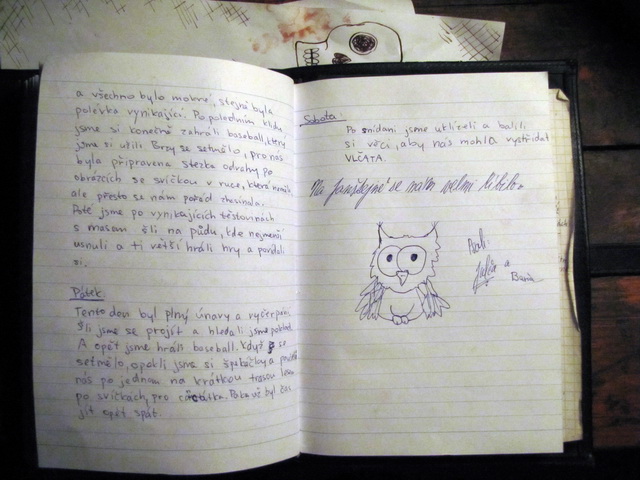 a všechno bylo mokré, stejně byla
polévka vynikající. Po poledním klidu
jsme si konečně zahráli baseball, který
jsme si užili. Brzy se setmělo, pro nás
byla připravena stezka odvahy po
obrázcích se svíčkou v ruce, která
ale přesto se nám pořád zhasínala.
Poté jsme po vynikajících těstovinách
s masem šli na půdu, kde nejmenší
usnuli a ti větší hráli hry a povídali
si.
Pátek:
Tento den byl plný únavy a vyčerpání.
Šli jsme se projít a hledali jsme poklad.
A opět jsme hráli baseball. Když se
setmělo, opekli jsme si špekáčky a
nás po jednom na krátkou trasu lesa
po svíčkách, pro. Pak už byl čas
jít opět spát.
Sobota:
Po snídani jsme uklízeli a balili
si věci, aby nás mohla vystřídat
VLČATA.
Na se nám velmi líbilo.
a
Bára